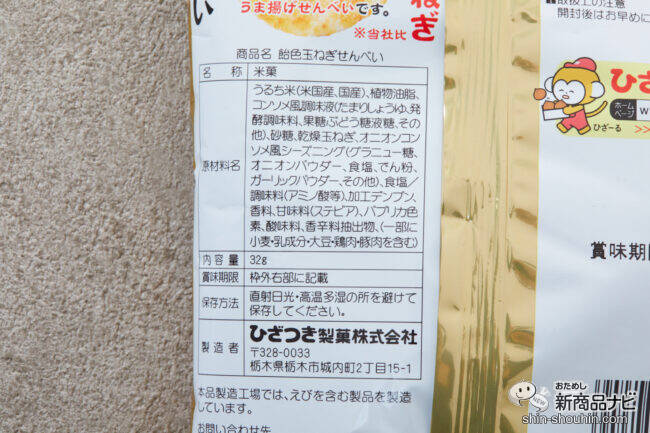 い
うま揚げせんべいです。
※当社比
ねぎ
商品名 飴色玉ねぎせんべい
名 称 米菓
原材料名
うるち米(米国産、国産)、植物油脂、
コンソメ風調味液(たまりしょうゆ、発
酵調味料、果糖ぶどう糖液糖、その
他)、砂糖、乾燥玉ねぎ、オニオンコン
ソメ風シーズニング(グラニュー糖、
オニオンパウダー、食塩、でん粉、
ガーリックパウダー、その他)、食塩/
調味料(アミノ酸等)、加工デンプン、
香料、甘味料(ステビア)、パプリカ色
素、酸味料、香辛料抽出物、(一部に
小麦・乳成分・大豆・鶏肉・豚肉を含む)
内容量 32g
賞味期限 枠外右部に記載
保存方法 直射日光・高温多湿の所を避けて
保存してください。
製造者 ひざつき製菓株式会社
〒328-0033
栃木県栃木市城内町2丁目15-1
本品製造工場では、えびを含む製品を製造
しています。
お問い合わせ先
取扱上の注意
開封後はお早めに
ひざ
ホーム
ページ
W
ひざーる
>>
賞味期
おためし
新商品ナビ
NEW
shin-shouhin.com